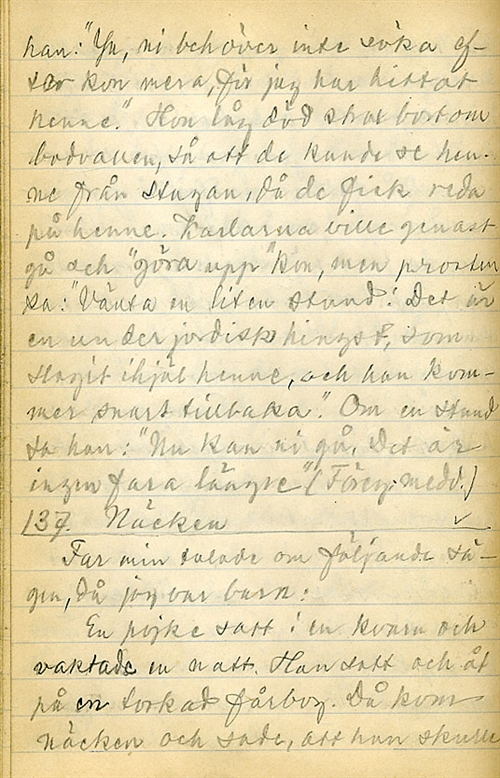 han: "Ja, ni behöver inte söka ef-
ter kon mera, för jag har hittat
henne." Hon låg död strax bortom
bodvallen, så att de kunde se hen-
ne från stugan, då de fick reda
på henne. Karlarna ville genast
gå och "göra upp" kon, men prosten
sa: "Vänta en liten stund! Det är
en underjordisk hingst, som
slagit ihjäl henne, och han kom-
mer snart tillbaka." Om en stund
sa han: "Nu kan ni gå. Det är
ingen fara längre" (Föreg. medd.)
137. Näcken ✓
Far min talade om följande sä-
gen, då jag var barn:
En pojke satt i en kvarn och
vaktade en natt. Han satt och åt
på en torkad fårbog. Då kom
näcken och sade, att han skulle